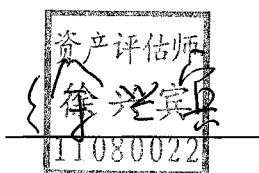 资产评估师
徐兴宾
11080022